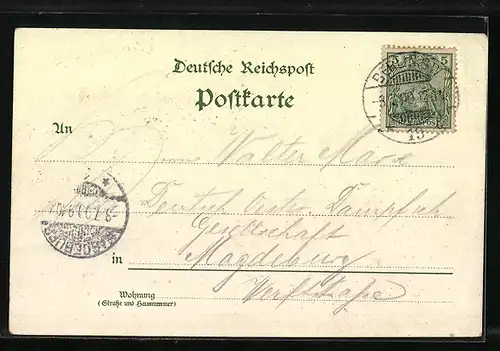 Deutsche Reichspost
Postkarte
An
Walter Marx
Deutsch Oester. Dampfsch
Gesellschaft
in Magdeburg
Werftstraße
Wohnung
(Straße und Hausnummer)
BERLIN
19
MAGDEBURG
5